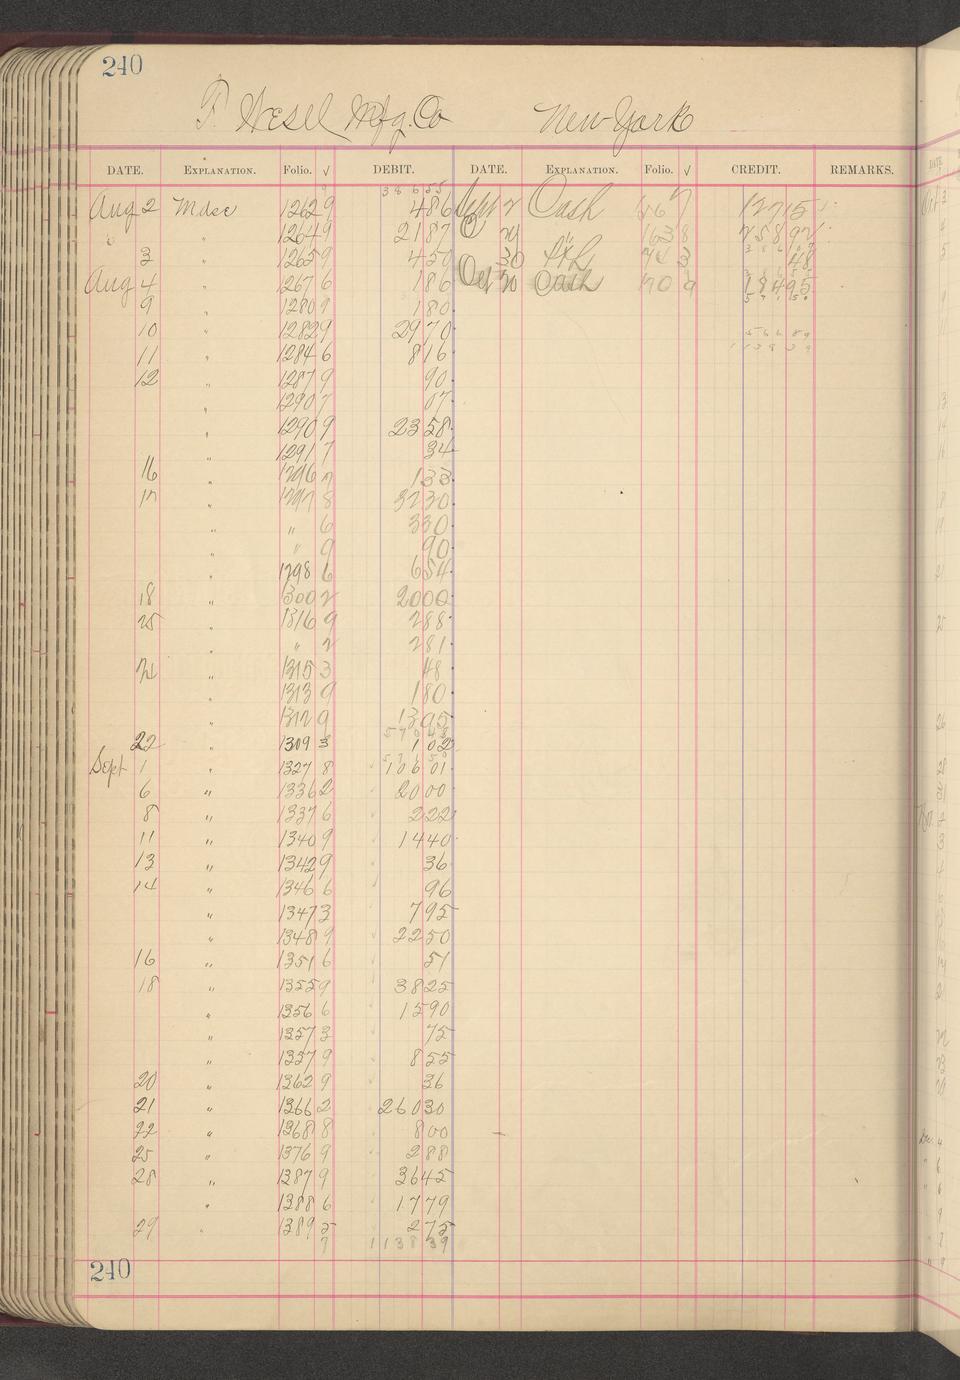 240
Mfg. Co New York
DATE. EXPLANATION. Folio. √ DEBIT. DATE. EXPLANATION. Folio. √ CREDIT. REMARKS.
38655
Aug 2 Mdse 1262 9 486 Sept 2 Cash 7 12715
" 1264 9 2187 24 " 163 8 25892
3 " 1265 9 450 30 3 48
Aug 4 " 1267 6 186 Oct 20 Cash 70 9 18495
9 " 1280 9 180
10 " 1282 9 2970 56689
11 " 1284 6 816 113839
12 " 1287 9 90
" 1290 7 07
" 1290 9 2358
" 1291 7 34
16 " 1296 133
17 " 1297 8 3230
" " 6 330
" " 9 90
" 1298 6 654
18 " 1300 2 2000
25 " 1316 9 288
" " 2 281
24 " 1315 3 48
" 1313 9 180
" 1312 9 1395
22 " 1309 3 102
Sept 1 " 1327 8 10601
6 " 1336 2 2000
8 " 1337 6 222
11 " 1340 9 1440
13 " 1342 9 36
14 " 1346 6 96
" 1347 3 795
" 1348 9 2250
16 " 1351 6 51
18 " 1355 9 3825
" 1356 6 1590
" 1357 3 75
" 1357 9 855
20 " 1362 9 36
21 " 1366 2 26030
22 " 1368 8 800
25 " 1376 9 288
28 " 1387 9 3645
" 1388 6 1779
29 " 1389 5 275
9 113839
240